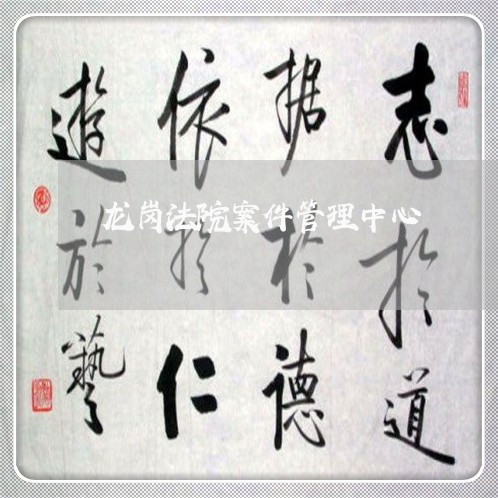 志於道
据於德
依於仁
遊於藝
龙岗法院案件管理中心